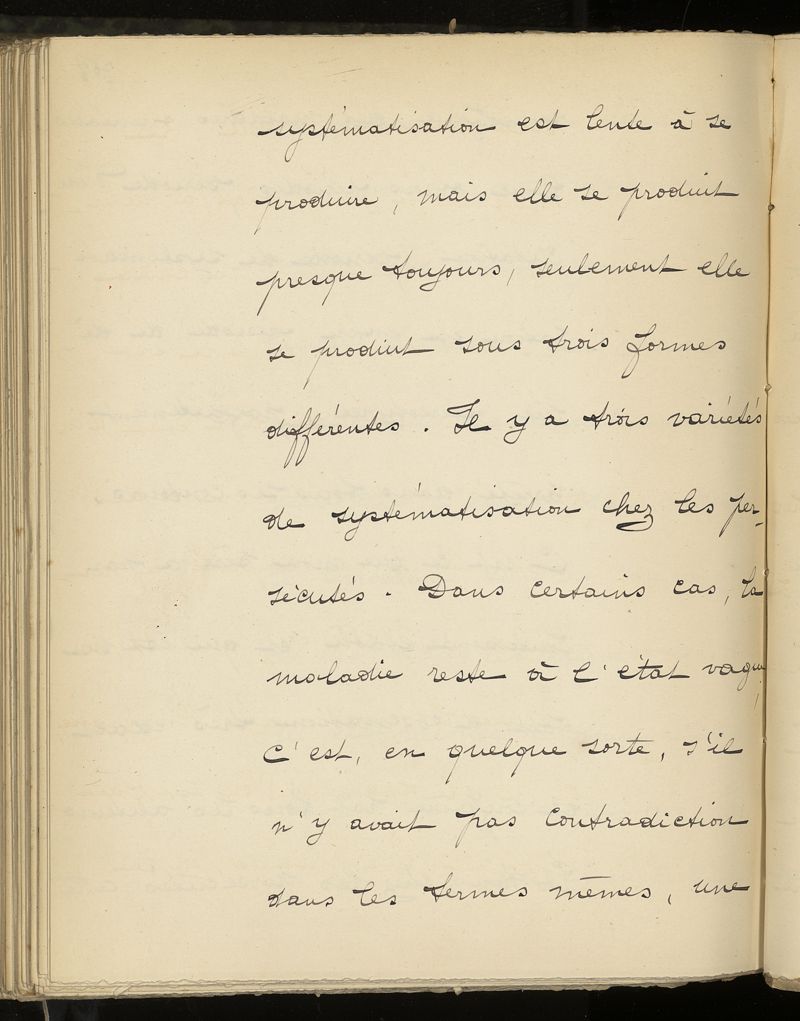 systématisation est lente à se
produire, mais elle se produit
presque toujours, seulement elle
se produit sous trois formes
différentes. Il y a trois variétés
de systématisation chez les per-
sécutés. Dans certains cas, la
maladie reste à l'état vague,
c'est, en quelque sorte, s'il
n'y avait pas contradiction
dans les termes mêmes, une